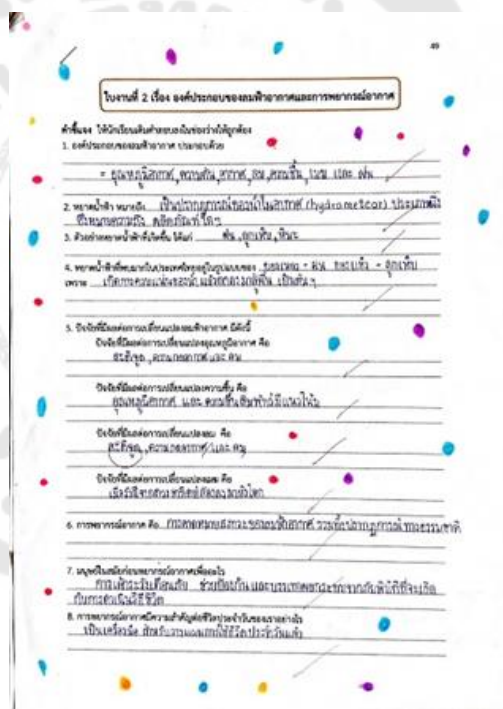 49
ใบงานที่ 2 เรื่อง องค์ประกอบของลมฟ้าอากาศและการพยากรณ์อากาศ
คำชี้แจง ให้นักเรียนเติมคำตอบลงในช่องว่างให้ถูกต้อง
1. องค์ประกอบของลมฟ้าอากาศ ประกอบด้วย
= อุณหภูมิอากาศ, ความดันอากาศ, ลม, ความชื้น, เมฆ และ ฝน
2. หยาดน้ำฟ้า หมายถึง เป็นปรากฏการณ์ของน้ำในอากาศ (hydrometeor) ประเภทหนึ่ง
ซึ่งหมายความถึง ผลิตภัณฑ์ใดๆ
3. ตัวอย่างหยาดน้ำฟ้าที่เกิดขึ้น ได้แก่ ฝน, ลูกเห็บ, หิมะ
4. หยาดน้ำฟ้าที่พบมากในประเทศไทยอยู่ในรูปแบบของ ของเหลว - ฝน ของแข็ง - ลูกเห็บ
เพราะ เกิดการควบแน่นของน้ำ แล้วตกลงมาสู่พื้น เป็นต้นๆ
5. ปัจจัยที่มีผลต่อการเปลี่ยนแปลงลมฟ้าอากาศ มีดังนี้
ปัจจัยที่มีผลต่อการเปลี่ยนแปลงอุณหภูมิอากาศ คือ
ละติจูด, ความกดอากาศ และ ลม
ปัจจัยที่มีผลต่อการเปลี่ยนแปลงความชื้น คือ
อุณหภูมิอากาศ และ ความชื้นสัมพัทธ์มีแนวโน้ม
ปัจจัยที่มีผลต่อการเปลี่ยนแปลงลม คือ
ละติจูด, ความกดอากาศ และ ลม
ปัจจัยที่มีผลต่อการเปลี่ยนแปลงเมฆ คือ
6. การพยากรณ์อากาศ คือ การคาดหมายสภาวะของลมฟ้าอากาศ รวมทั้งปรากฏการณ์ทางธรรมชาติ
7. มนุษย์ในสมัยก่อนพยากรณ์อากาศเพื่ออะไร
การเฝ้าระวังเตือนภัย ช่วยป้องกัน และบรรเทาผลกระทบจากภัยพิบัติที่จะเกิด
กับการดำเนินวิถีชีวิต
8. การพยากรณ์อากาศมีความสำคัญต่อชีวิตประจำวันของเราอย่างไร
เป็นเครื่องมือ สำหรับวางแผนการใช้ชีวิตประจำวันแล้ว